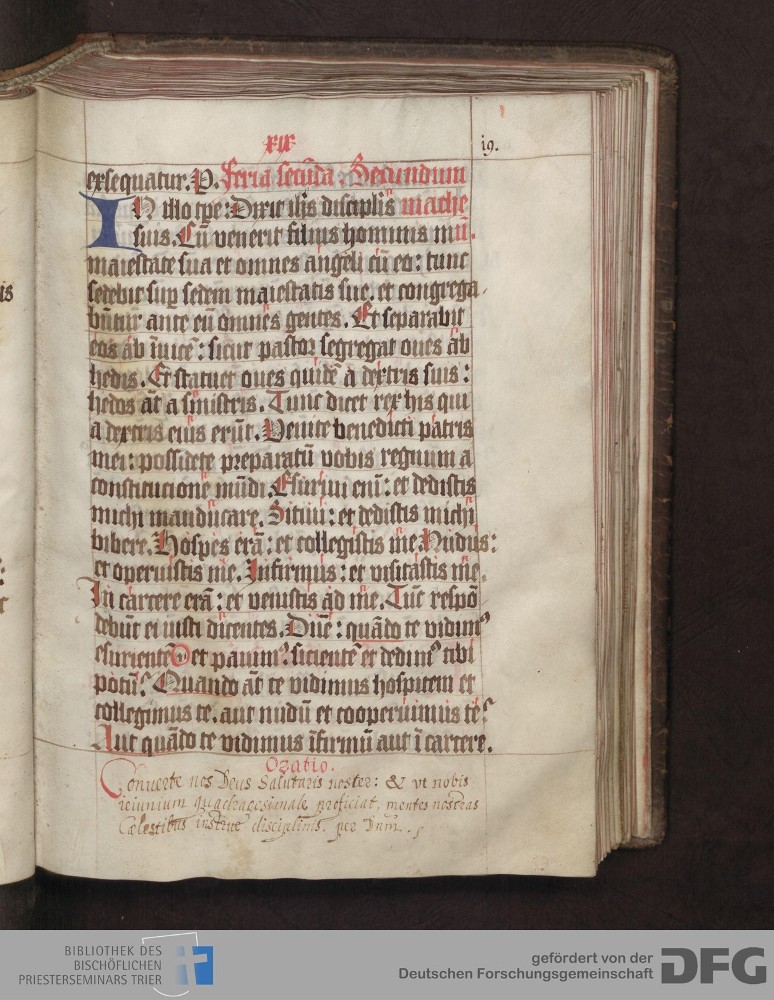 xix
19.
exsequatur. P. Feria secūda. Secundum
IN illo tpe: Dixit ihs disciplis mathe
suis. Cū venerit filius hominis in ū.
maiestate sua et omnes angeli cū eo: tunc
sedebit sup sedem maiestatis sue. et congrega
būtur ante eū omnes gentes. Et separabit
eos ab īuicē: sicut pastor segregat oues ab
hedis. Et statuet oues quidē a dextris suis:
hedos āt a sinistris. Tunc dicet rex his qui
a dextris eius erūt. Venite benedicti patris
mei: possidete preparatū vobis regnum a
constitucione mūdi. Esuriui eni: et dedistis
michi manducare. Sitiui: et dedistis michi
bibere. Hospes erā: et collegistis me. Nudus:
et operuistis me. Infirmus: et visitastis me.
In carcere erā: et venistis ad me. Tūc respō
debūt ei iusti dicentes. Dnē: quādo te vidimꝰ
esurientē et pauimꝰ. sicientē et dedimꝰ tibi
potū? Quando āt te vidimus hospitem et
collegimus te. aut nudū et cooperuimus te?
Aut quādo te vidimus īfirmū aut ī carcere.
Oratio.
Conuerte nos Deus Salutaris noster: & vt nobis
ieiunium quadragesimale proficiat, mentes nostras
Cælestibus instrue disciplinis. per Dnm̄.
is
BIBLIOTHEK DES
BISCHÖFLICHEN
PRIESTERSEMINARS TRIER
gefördert von der
Deutschen Forschungsgemeinschaft DFG